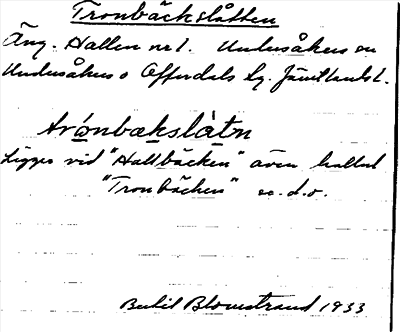 Tronbäckslåtten
Äng. Hallen nr 1. Undersåkers sn
Undersåkers o Offerdals tg. Jämtlands l.
trónbækslàtn
Ligger vid "Hallbäcken" även kallad
"Tronbäcken" so. d. o.
Bertil Blomstrand 1933